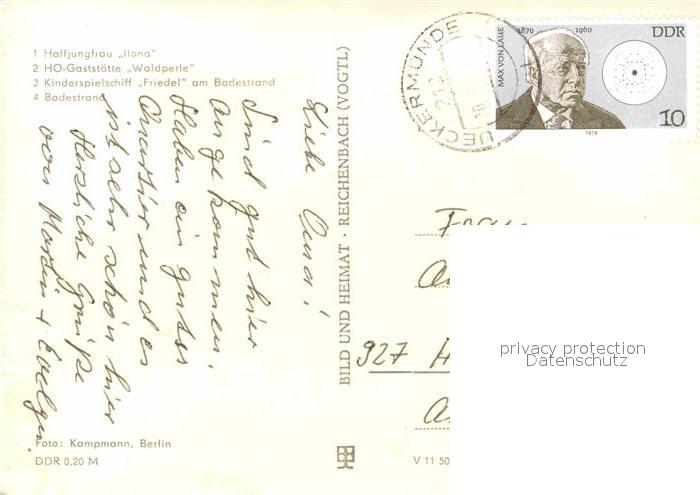 1 Haffjungfrau „Ilona"
2 HO-Gaststätte „Waldperle"
3 Kinderspielschiff „Friedel" am Badestrand
4 Badestrand
Liebe Anna!
Sind gut hier
angekommen.
Haben ein gutes
Quartier und es
ist sehr schön hier
Herzliche Grüße
von Martin +
Foto: Kampmann, Berlin
DDR 0,20 M
BILD UND HEIMAT · REICHENBACH (VOGTL)
V 11 50
UECKERMÜNDE
MAX VON LAUE
1879 1960
DDR
10
1979
Frau
927 H
privacy protection
Datenschutz